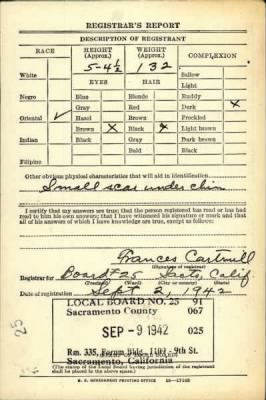 REGISTRAR'S REPORT
DESCRIPTION OF REGISTRANT
RACE HEIGHT (Approx.) WEIGHT (Approx.) COMPLEXION
5-4½ 132
White Sallow
EYES HAIR Light
Negro Blue Blonde Ruddy
Gray Red Dark X
Oriental ✓ Hazel Brown Freckled
Brown X Black X Light brown
Indian Black Gray Dark brown
Bald Black
Filipino
Other obvious physical characteristics that will aid in identification
Small scar under chin
I certify that my answers are true; that the person registered has read or has had
read to him his own answers; that I have witnessed his signature or mark and that
all of his answers of which I have knowledge are true, except as follows:
Frances Cartmill
(Signature of registrar)
Registrar for Board #25 Sacto, Calif.
Date of registration Sept 2, 1942
LOCAL BOARD NO. 25 91
Sacramento County 067
SEP - 9 1942 025
Rm. 335, Forum Bldg. 1107 - 9th St.
Sacramento, California
(The stamp of the Local Board having jurisdiction of the registrant
shall be placed in the above space.)
U. S. GOVERNMENT PRINTING OFFICE
25